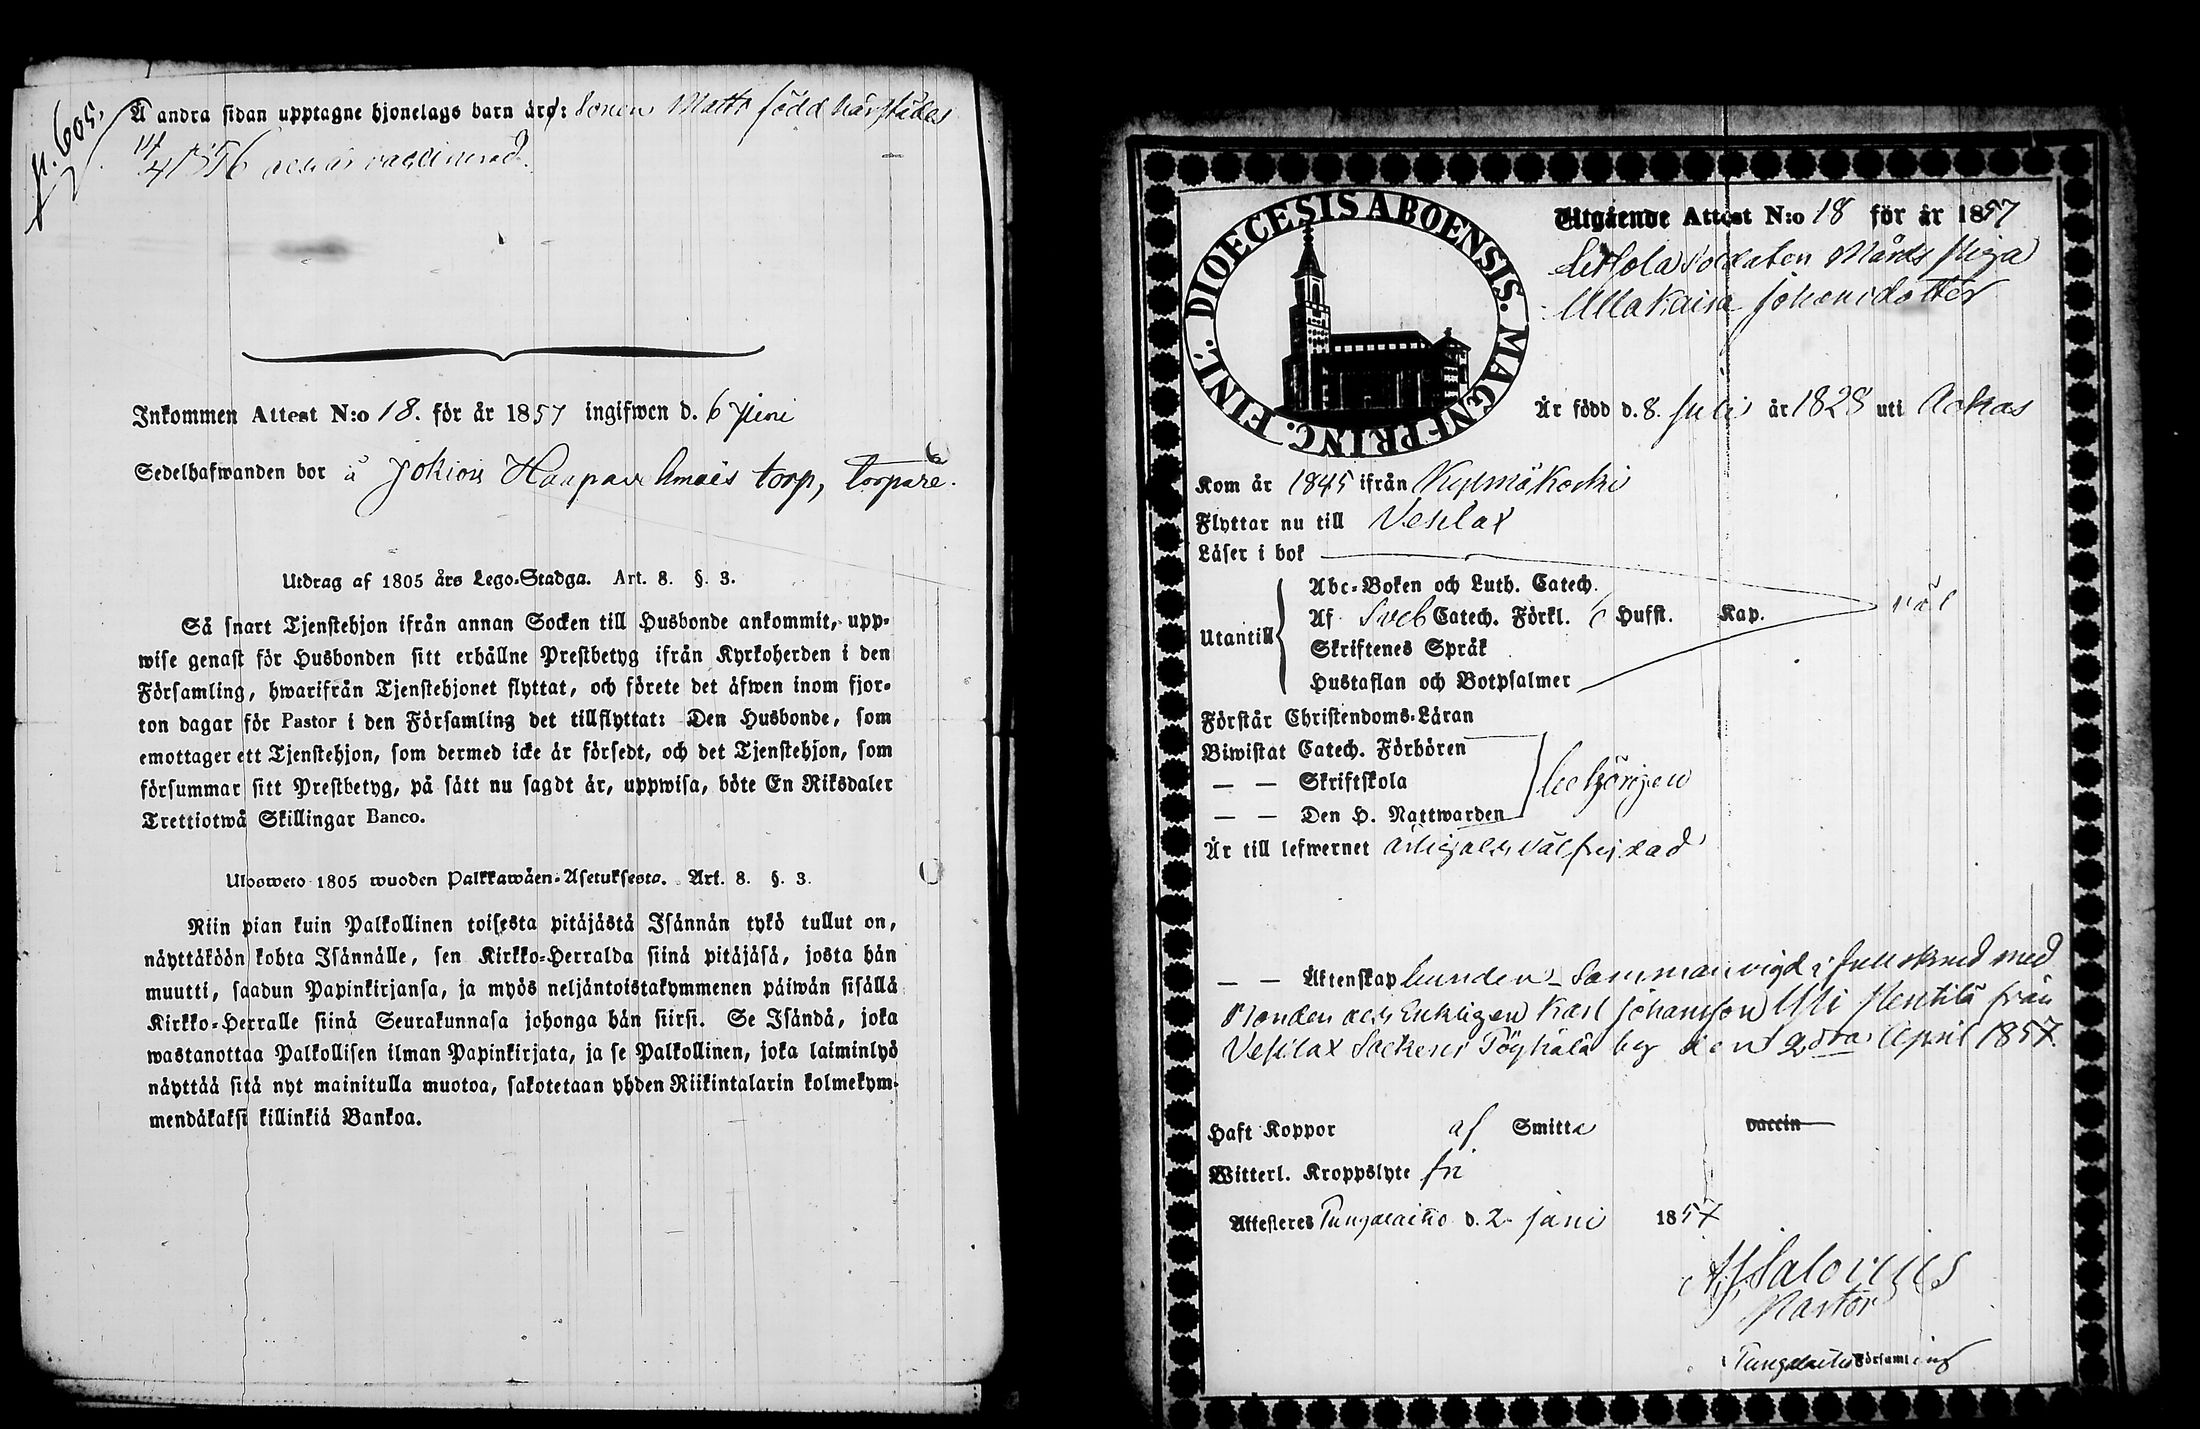 p. 605.
Å andra sidan upptagne hjonelags barn äro: Sonen Matts född härstädes
14/4 1856 och är vaccinerad.
Inkommen Attest N:o 18. för år 1857 ingifwen d. 6 Juni
Sedelhafwanden bor å Jokiois torp, torpare.
Utdrag af 1805 års Lego-Stadga. Art. 8. §. 3.
Så snart Tjenstehjon ifrån annan Socken till Husbonde ankommit, upp-
wise genast för Husbonden sitt erhållne Prestbetyg ifrån Kyrkoherden i den
Församling, hwarifrån Tjenstehjonet flyttat, och förete det äfwen inom fjor-
ton dagar för Pastor i den Församling det tillflyttat: Den Husbonde, som
emottager ett Tjenstehjon, som dermed icke är försedt, och det Tjenstehjon, som
försummar sitt Prestbetyg, på sätt nu sagdt är, uppwisa, böte En Riksdaler
Trettiotwå Skillingar Banco.
Ulosweto 1805 wuoden Palkkawäen-Asetuksesta. Art. 8. §. 3.
Niin pian kuin Palkollinen toisesta pitäjästä Isännän tykö tullut on,
näyttäköön kohta Isännälle, sen Kirkko-Herralda siinä pitäjäsä, josta hän
muutti, saadun Papinkirjansa, ja myös neljäntoistakymmenen päiwän sisällä
Kirkko-Herralle siinä Seurakunnasa johonga hän siirsi. Se Isändä, joka
wastanottaa Palkollisen ilman Papinkirjata, ja se Palkollinen, joka laiminlyö
näyttää sitä nyt mainitulla muotoa, sakotetaan yhden Riikintalarin kolmekym-
mendäkaksi killinkiä Bankoa.
DIOECESIS ABOENSIS. MAGNI PRINC. FINL.
Utgående Attest N:o 18 för år 1857
soldaten Mårds piga
Ulla Kaisa Johansdotter
Är född d. 8. Juli år 1828 uti Achas
Kom år 1845 ifrån Kylmäkoski
Flyttar nu till Vesilax
Läser i bok
Abc-Boken och Luth. Catech.
Utantill Af Sveb Catech. Förkl. 6 Hufst. Kap. väl
Skriftenes Språk
Hustaflan och Botpsalmer
Förstår Christendoms-Läran
Biwistat Catech. Förhören
— — Skriftskola behörigen
— — Den H. Nattwarden
Är till lefwernet ärlig och välfrejdad
— — Äktenskap bunden – Sammanvigd i med
Bonden och Enklingen Karl Johansson Uli Penttilä från
Vesilax Sockens by den 2dra April 1857.
Haft Koppor af Smitta vaccin
Witterl. Kroppslyte fri
Attesteres d. 2 juni 1857
Salovius
Pastor
Församling